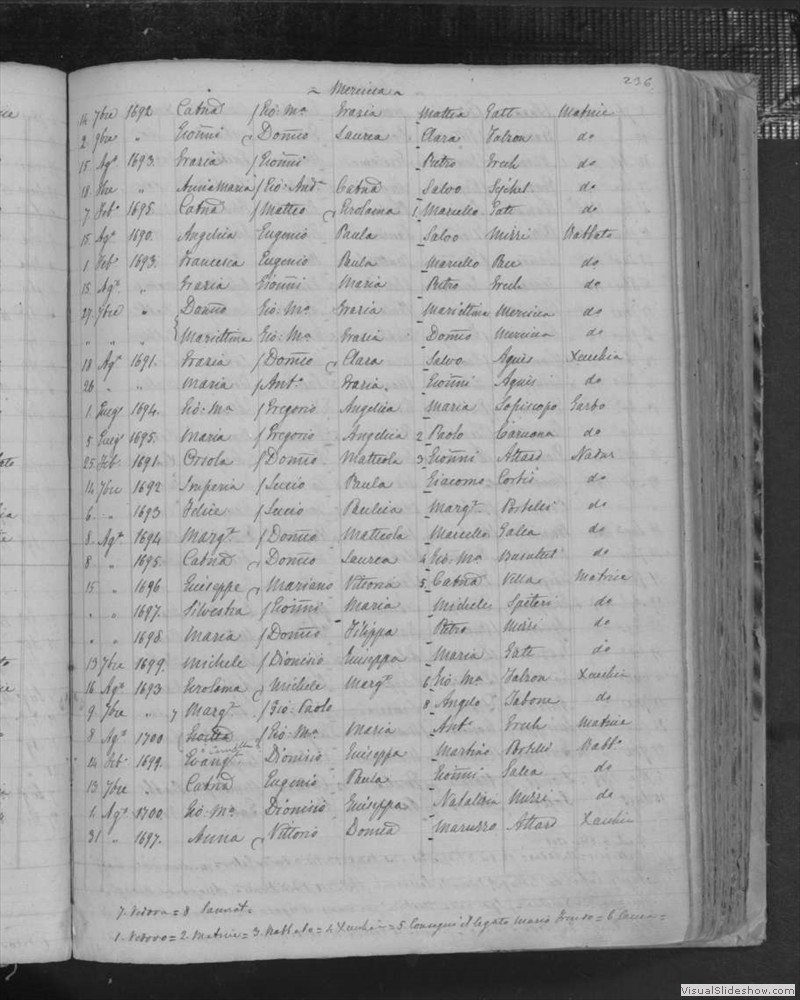 236
~ Mercieca ~
14 7bre 1692 Catnã / Gio: Mª Grazia Mattea Gatt Matrice
2 9bre " Gioñni Domco Laurea Clara Falzon do
15 Agº 1693 Grazia / Gioñni Pietro Grech do
18 " Anna Maria / Gio: Andª Catnã Salvo do
7 Febº 1695 Catnã / Matteo Gerolama 1 Marcello Gatt do
15 Agº 1690. Angelica Eugenio Paula Salvo Mizzi Rabbato
1 Febº 1693. Francesca Eugenio Paula Marcello do
15 Agº " Grazia Gioñni Maria Pietro Grech do
27 7bre " Domco Gio: Mª Grazia Mariettina Mercieca do
" " " Mariettina Gio: Mª Grazia Domco Mercieca do
18 Agº 1691. Grazia / Domco Clara Salvo Agius Xeuchia
26 " " Maria / Antº Grazia Gioñni Agius do
1 1694. Gio: Mª / Gregorio Angelica Maria Garbo
5 1695. Maria / Gregorio Angelica 2 Paolo Caruana do
25 Feb 1691. Orsola / Domco Matteola 3 Gioñni Attard Nadur
14 7bre 1692 Imperia / Lucio Paula Giacomo Cortis do
6 " 1693 Felice / Lucio Paulica Margª Portelli do
8 Agº 1694 Margª / Domco Matteola Marcello Galea do
8 " 1695. Catnã Domco Laurea 4 Gio: Mª Busuttil do
15 " 1696 Giuseppe Mariano Vittoria 5 Catnã Villa Matrice
" " 1697. Silvestra / Gioñni Maria Michele Spiteri do
" " 1698. Maria / Domco Filippa Pietro Mizzi do
13 7bre 1699. Michele / Dionisio Giuseppa Maria Gatt do
16 Agº 1693 Gerolama Michele Margª 6 Gio: Mª Falzon Xeuchia
9 7bre " 7 Margª / Gio: Paolo 8 Angelo Tabone do
8 Agº 1700 / Gio: Mª Maria Antº Grech Matrice
14 Feb 1699. Evangª Dionisio Giuseppa Martino Portelli Rabbº
13 7bre Catnã Eugenio Paula Gioñni Galea do
1 Agº 1700 Gio: Mª Dionisio Giuseppa Natalizia Mizzi do
31 " 1697. Anna Vittorio Domca Maruzzo Attard Xeuchia
7. Vedova = 8
1. Vedovo = 2. Matrice = 3. Rabbato = 4 Xeuchia = 5. Conseguì il legato Mario = 6
VisualSlideshow.com